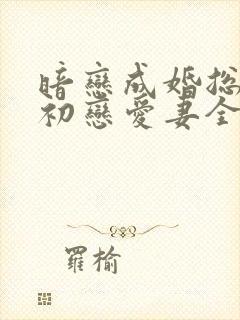 暗戀成婚總
初戀愛妻全
羅榆